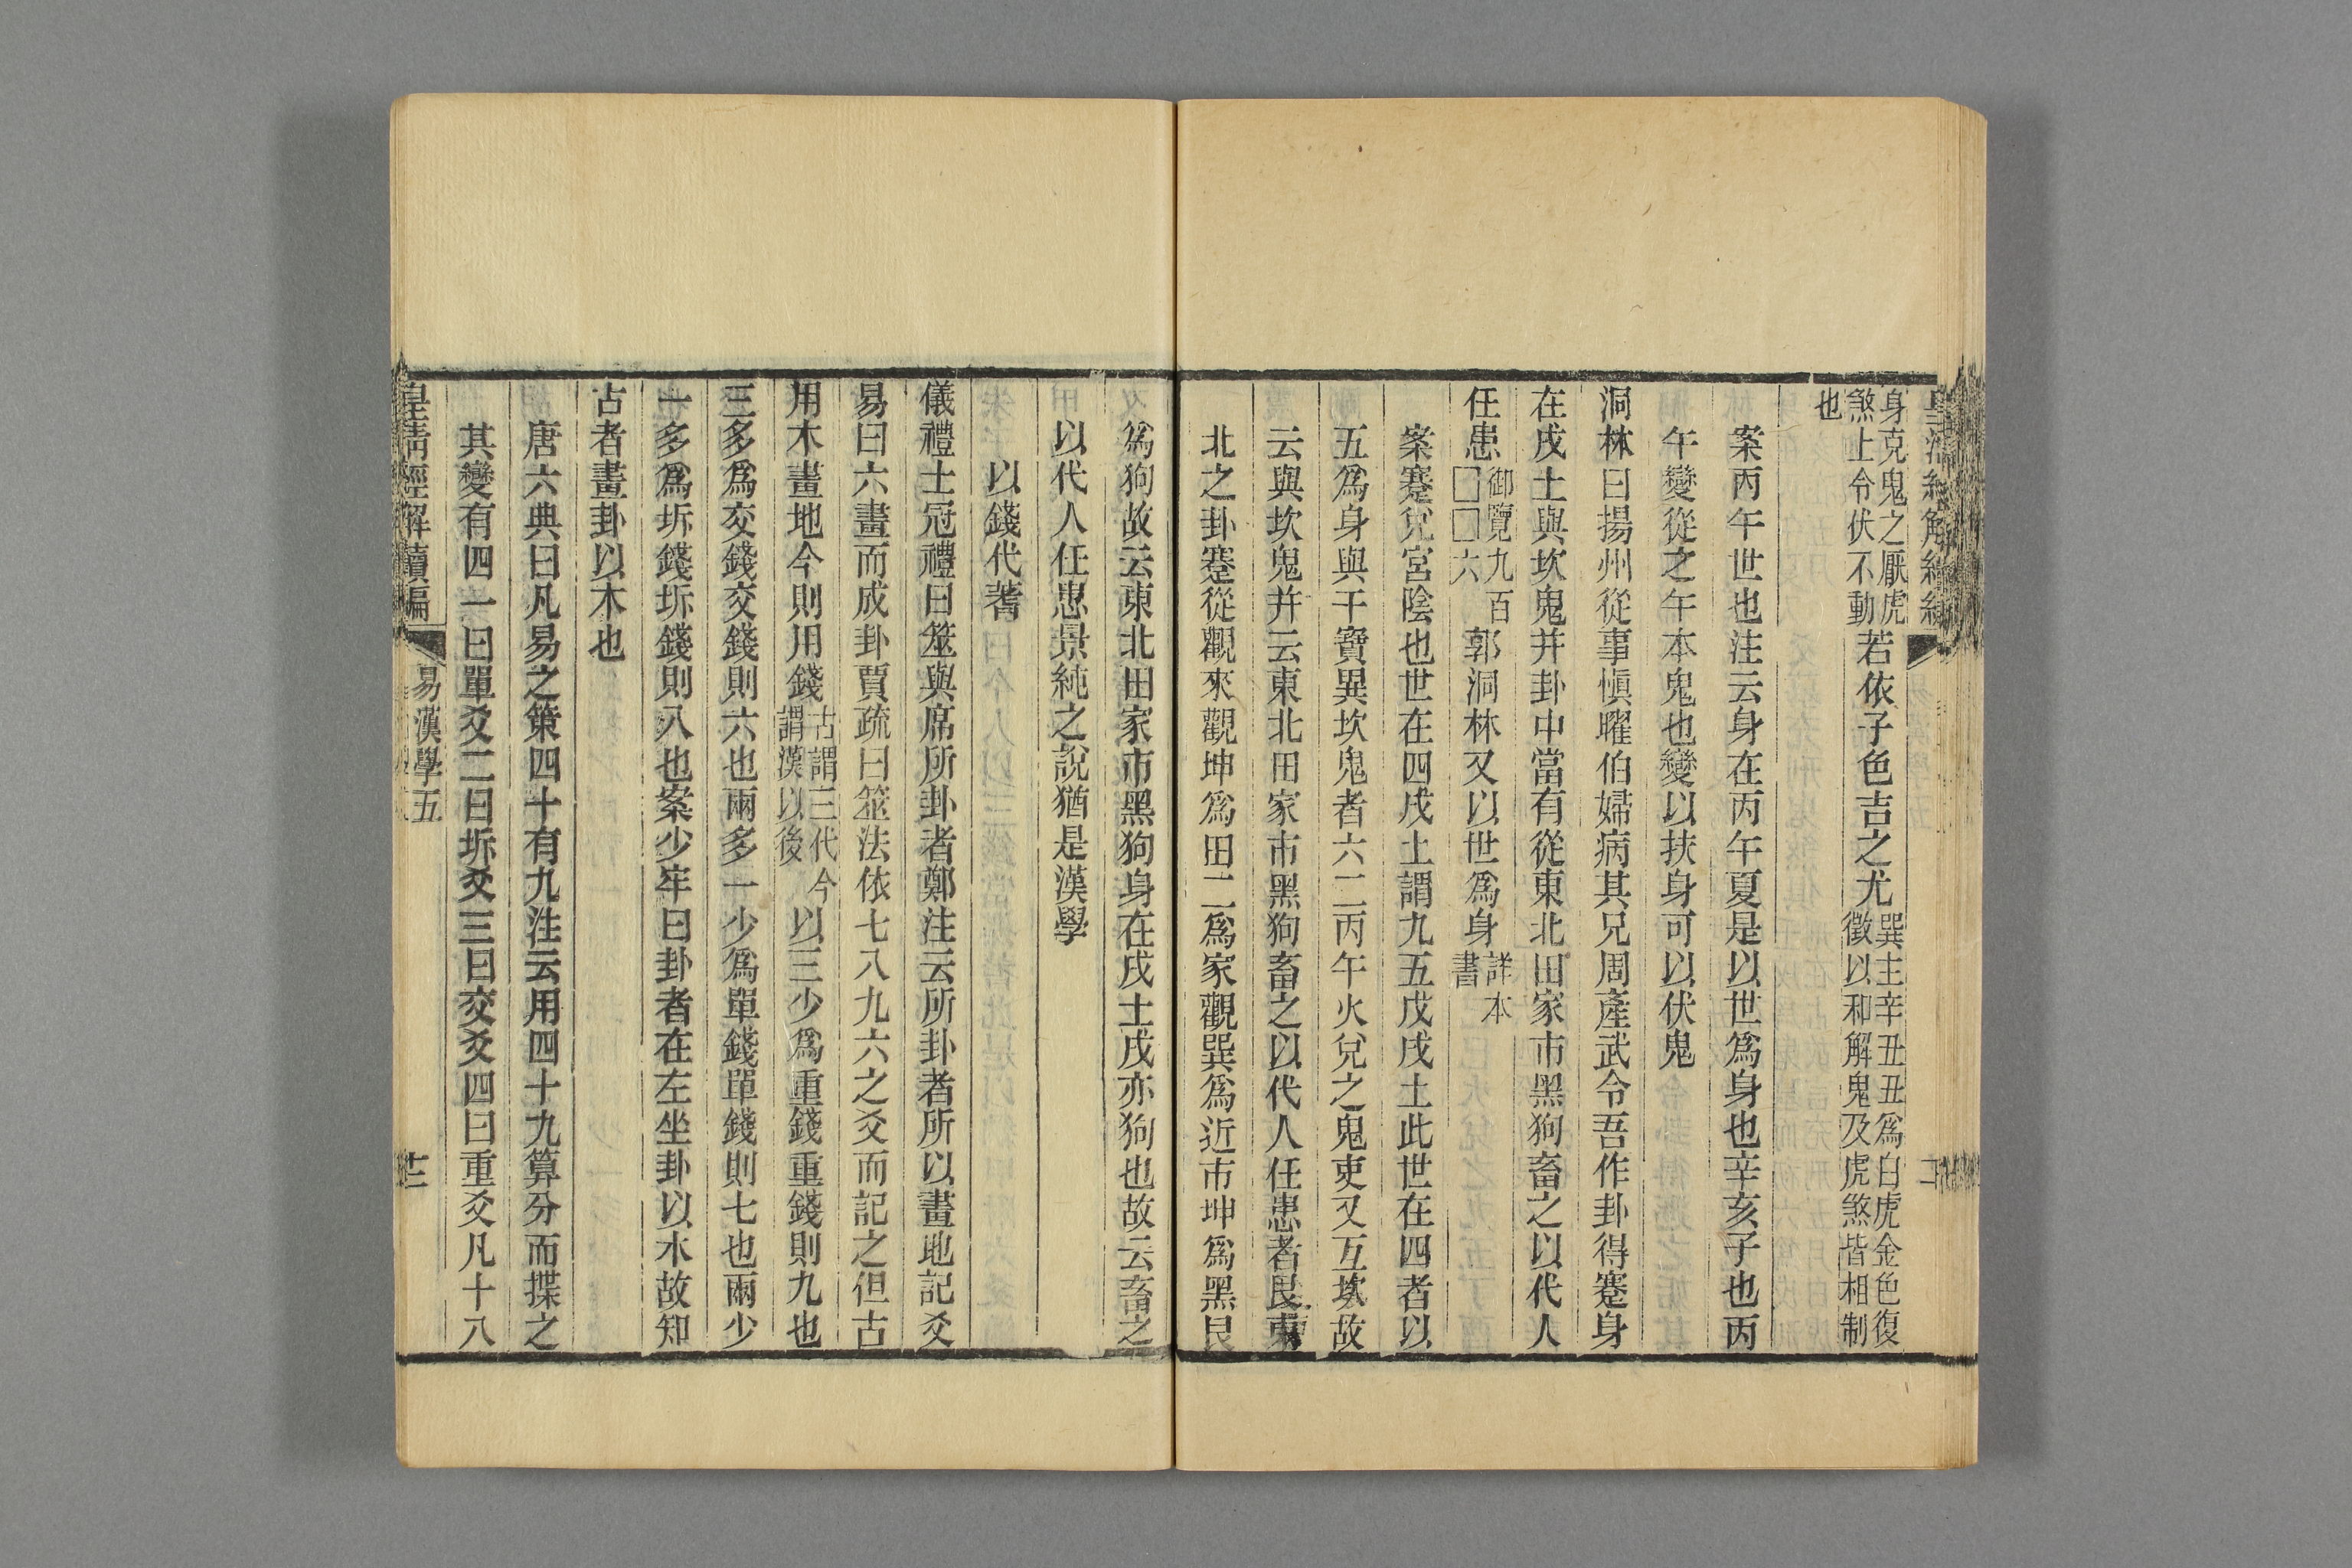 身克鬼之厭虎
煞上令伏不動
也
若依子色吉之尤
巽主辛丑丑爲白虎金色復
徵以和解鬼及虎煞皆相制
案丙午世也注云身在丙午夏是以世爲身也辛亥子也丙
午變從之午本鬼也變以扶身可以伏鬼
洞林曰揚州從事愼曜伯婦病其兄周產武令吾作卦得蹇身
在戌土與坎鬼并卦中當有從東北田家市黑狗畜之以代人
任患
御覽九百
□□六
郭洞林又以世爲身
詳本
書
案蹇兌宮陰也世在四戌土謂九五戊戌土此世在四者以
五爲身與干寶異坎鬼者六二丙午火兌之鬼吏又互坎故
云與坎鬼并云東北田家市黑狗畜之以代人任患者艮東
北之卦蹇從觀來觀坤爲田二爲家觀巽爲近市坤爲黑艮
爲狗故云東北田家市黑狗身在戌土戌亦狗也故云畜之
以代人任患景純之說猶是漢學
以錢代蓍
儀禮士冠禮曰筮與席所卦者鄭注云所卦者所以畫地記爻
易曰六畫而成卦賈疏曰筮法依七八九六之爻而記之但古
用木畫地今則用錢
古謂三代今
謂漢以後
以三少爲重錢重錢則九也
三多爲交錢交錢則六也兩多一少爲單錢單錢則七也兩少
一多爲坼錢坼錢則八也案少牢曰卦者在左坐卦以木故知
古者畫卦以木也
唐六典曰凡易之策四十有九注云用四十九算分而揲之
其變有四一曰單爻二曰坼爻三曰交爻四曰重爻凡十八
皇淸經解續編
易漢學五